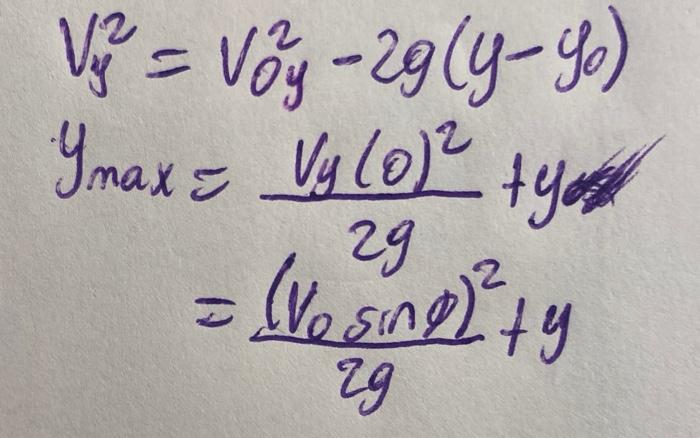 Vy² = V0y² - 2g(y - y0)
ymax = Vy(0)² / 2g + y
= (V0 sin φ)² / 2g + y